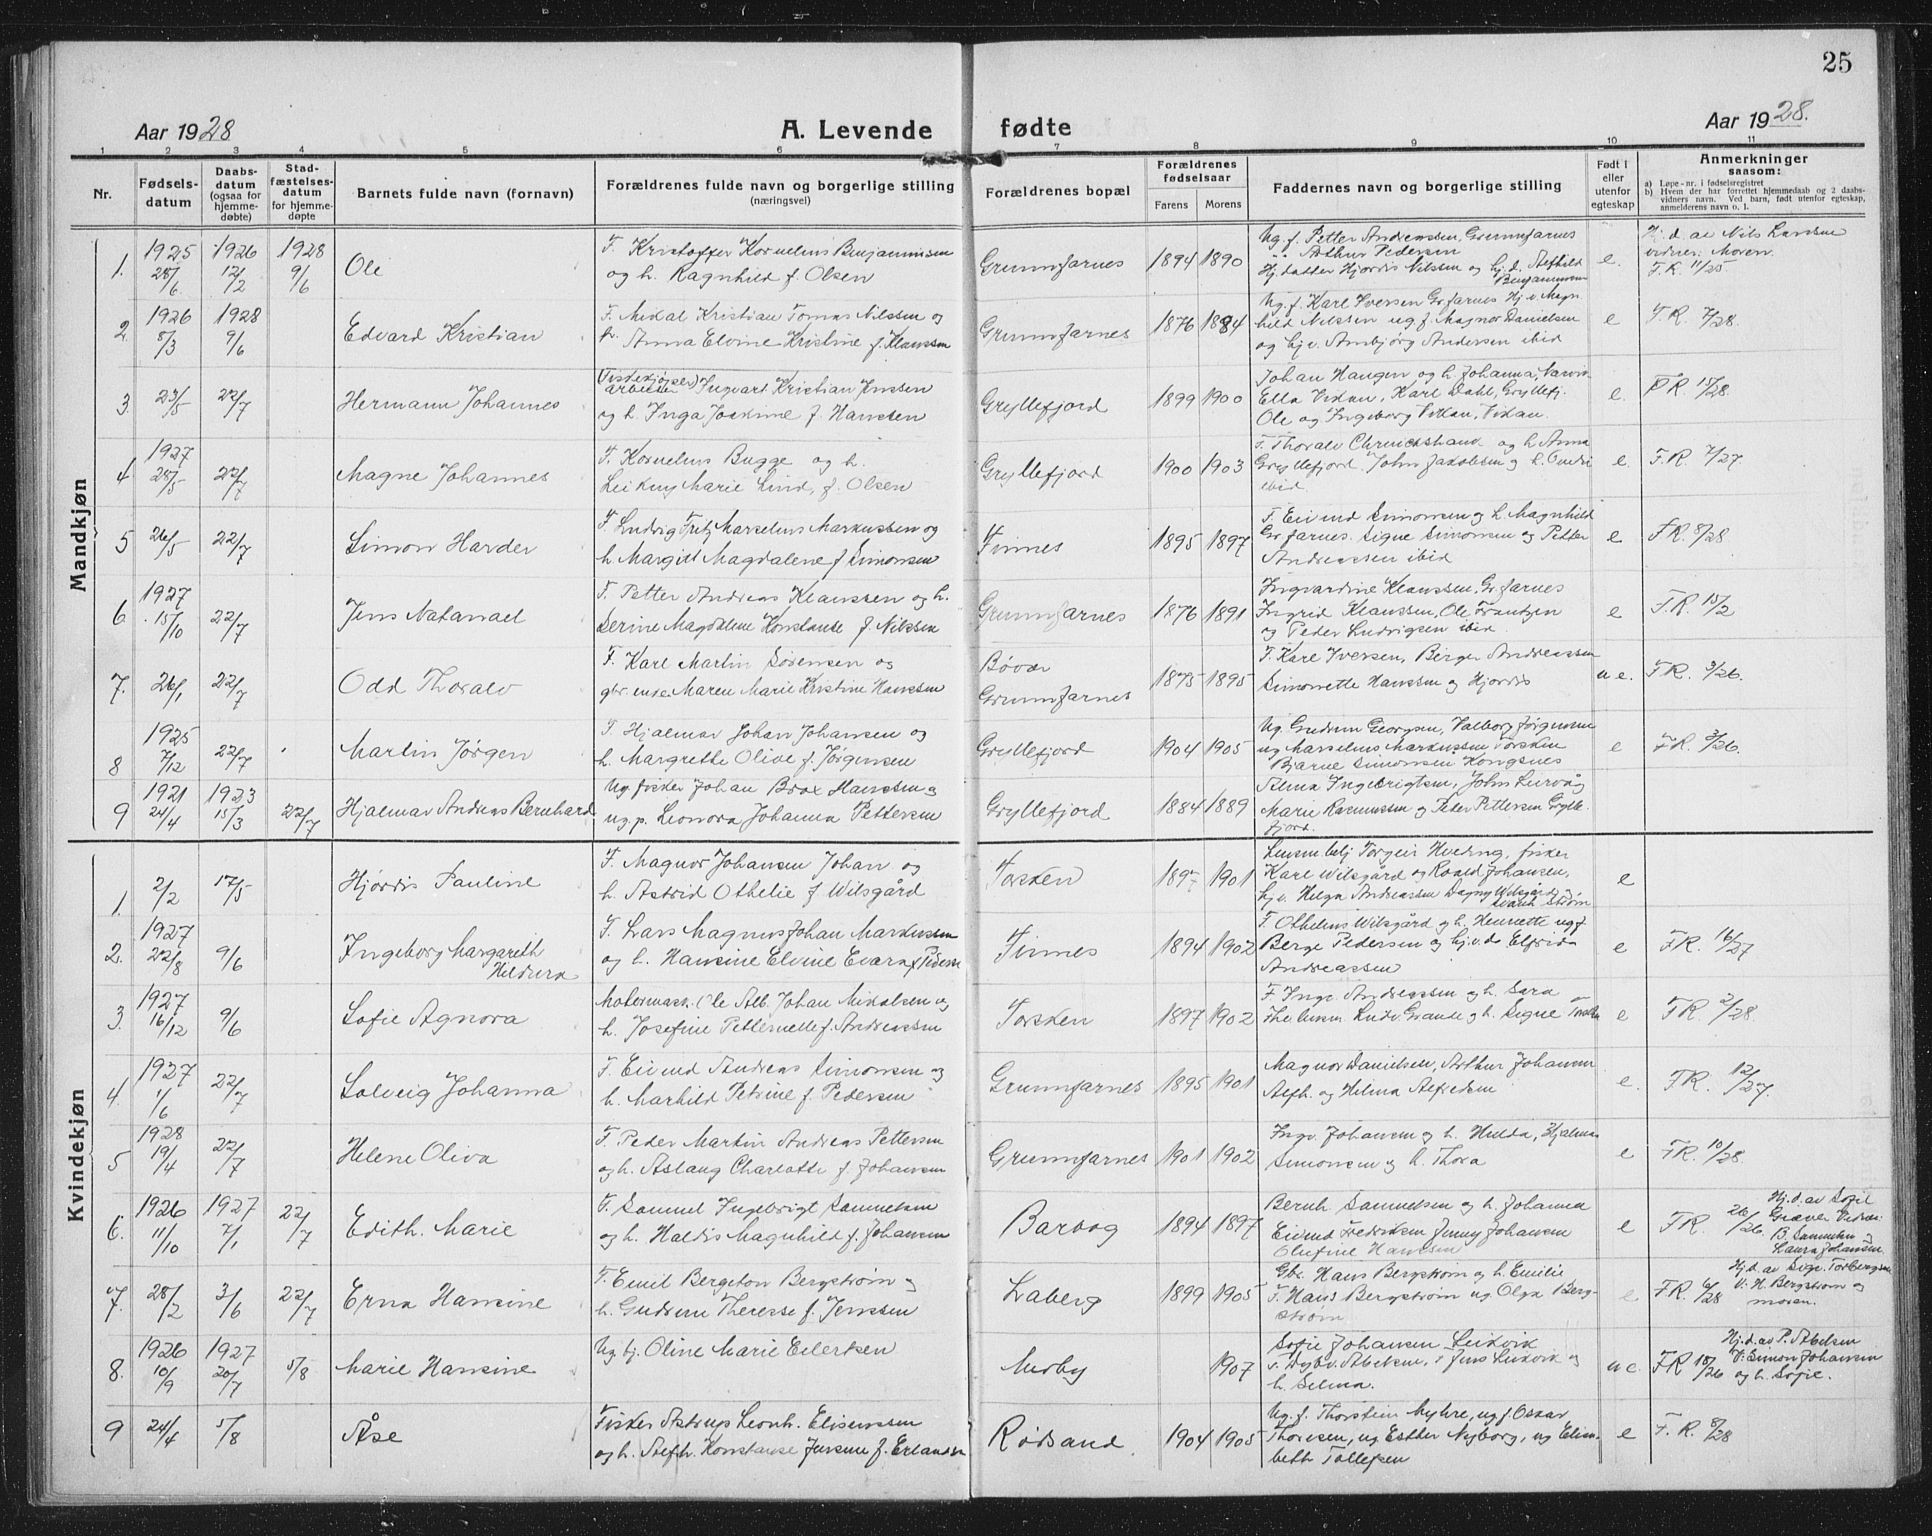 25
Aar 1928
A. Levende fødte
Aar 1928.
1 2 3 4 5 6 7 8 9 10 11
Nr.
Fødsels-
datum
Daabs-
datum
(ogsaa for
hjemme-
døbte)
Stad-
fæstelses-
datum
for hjemme-
døpte
Barnets fulde navn (fornavn)
Forældrenes fulde navn og borgerlige stilling
(næringsvei)
Forældrenes bopæl
Forældrenes
fødselsaar
Farens Morens
Faddernes navn og borgerlige stilling
Født i
eller
utenfor
egteskap
Anmerkninger
saasom:
a) Løpe-nr. i fødselsregistret
b) Hvem der har forrettet hjemmedaab og 2 daabs-
vidners navn. Ved barn, født utenfor egteskap,
anmelderens navn o. l.
Mandkjøn
1. 1925 28/6 1926 12/2 1928 9/6 Ole
F. Kristoffer Kornelius Benjaminsen
og h. Ragnhild f. Olsen
Grunnfarnes 1894 1890
Ug. f. Petter Andreassen, Grunnfarnes
" " Arthur Pedersen
Hj. datter Hjørdis Nilssen og hj. d. Alfhild
Benjaminsen
e.
Hj. d. av Nils Larssen
vidner: Moren.
F. R. 11/25
2. 1926 8/3 1928 9/6 Edvard Kristian
F. Mikal Kristian Tomas Nilssen og
h. Anna Elvine Kristine f. Klaussen
Grunnfarnes 1876 1884
Ug. f. Karl Iversen Gr.farnes Hj. v. Magn-
hild Nilssen ug. f. Magnor Danielsen
og hj v. Ambjørg Andersen ibid
e F. R. 7/28.
3. 23/5 22/7 Hermann Johannes
arbeider Ingvart Kristian Jenssen
og h. Inga Joakime f. Hanssen
Gryllefjord 1899 1900
Johan Haugen og h. Johanna, Narvik
Ella Vikan, Karl Dahl, Gryllefj.
Ole og Ingeborg Vikan, Vikan.
e. F R. 15/28.
4 1927 28/5 22/7 Magne Johannes
F. Kornelius Bugge og h.
Leikny Marie Lind, f. Olsen
Gryllefjord 1900 1903
F. Thoralv og h. Anna
Gryllefjord. John Jakobsen og h.
ibid.
e. F. R. 7/27
5 26/5 22/7 Simon Harder
F Ludvig Fritz Marselius Markussen og
h. Margit Magdalene f Simonsen
Finnes 1895 1897
F. Eivind Simonsen og h Magnhild
Gr.farnes. Signe Simonsen og Petter
Andreassen ibid
e F R. 8/28
6. 1927 15/10 22/7 Jens Natanael
F. Petter Andreas Klaussen og h.
Serine Magdalene Konstanse f. Nilssen
Grunnfarnes 1876 1891
Ingvardine Klaussen, Gr.farnes
Ingrid Klaussen, Ole Frantzen
og Peder Ludvigsen ibid.
e F. R. 15/2
7. 26/1 22/7 Odd Thoralv
F. Karl Martin Sørensen og
gbr. enke Maren Marie Kristine Hanssen
Bøvær
Grunnfarnes 1875 1895
F. Karl Iversen, Berger Andreassen
Simonette Hanssen og Hjørdis
u e. F R. 3/26.
8 1925 7/12 22/7 Martin Jørgen
F. Hjalmar Johan Johansen og
h. Margrette Olive f. Jørgensen
Gryllefjord 1904 1905
Ug. Gudrun Georgsen, Valborg Jørgensen
ug Marselius Markussen Torsken
Bjarne Simonsen Kongsnes
e F R. 3/26.
9 1921 24/4 1923 15/3 22/7 Hjalmar Andreas Bernhard
Ug. fisker Johan Brox Hanssen og
ug. p. Leonora Johanna Pettersen
Gryllefjord 1884 1889
Alma Ingebrigtsen, John Leirvåg
Marie Rasmussen og Peter Pettersen Grylle-
fjord.
Kvindekjøn
1. 2/2 17/5 Hjørdis Pauline
F. Magnor Johansen Johan og
h. Astrid Othelie f Wilsgård
Torsken 1897 1901
Lensm. betj Torgeir Hveding, fisker
Karl Wilsgård og Roald Johansen,
hj v. Helga Andreassen Dagny Wilsgård og
Strøm
e
2. 1927 22/8 9/6 Ingeborg Margareth
Hildura
F. Lars Magnus Johan Markussen
og h. Hansine Elvine Evara f. Pedersen
Finnes 1894 1902
F. Othelius Wilsgård og h. Henriette ug f
Berge Pedersen og hj. v. d Elfrida
Andreassen
e F R. 16/27
3. 1927 16/12 9/6 Sofie Agnora
Motormask. Ole Alb. Johan Mikalsen og
h. Josefine Petternelle f. Andreassen
Torsken 1897 1902
F. Inge Andreassen og h. Sara
og h. Signe Torsken
e F R. 2/28.
4. 1927 1/6 22/7 Solveig Johanna
F. Eivind Andreas Simonsen og
h. Marhild Petrine f. Pedersen
Grunnfarnes 1895 1901
Magnor Danielsen, Arthur Johansen
Alfh. og Helma Alfredsen
e. F R. 12/27.
5 1928 19/4 22/7 Helene Oliva
F. Peder Martin Andreas Pettersen
og h. Aslaug Charlotte f. Johansen
Grunnfarnes 1901 1902
Ingv. Johansen og h. Hilda, Hjalmar
Simonsen og h. Thora
e F R. 10/28.
6. 1926 11/10 1927 7/1 22/7 Edith. Marie
F. Samuel Ingebrigt Samuelsen
og h. Haldis Magnhild f. Johansen
Barbog 1894 1897
Bernh Samuelsen og h. Johanna
Eivind Fredriksen Jenny Johansen
Olufine Hanssen
e F R. 26/26.
Hj. d. av Sofie
Græver Vidner:
B. Samuelsen og
Laura Johansen.
7. 28/2 3/6 22/7 Erna Hansine
F. Emil Bergeton Bergstrøm og
h. Gudrun Therese f. Jenssen
Laberg 1899 1905
Gbr. Hans Bergstrøm og h. Emilie
F. Hans Bergstrøm ug Olga Berg-
strøm
e F R. 6/28
Hj. d. av Torbergsen
V: H. Bergstrøm og
moren.
8. 1926 10/9 1927 20/7 5/8 Marie Hansine
Ug tj. Oline Marie Eilertsen
Medby 1907
Sofie Johansen Leikvik
Abelsen, Jens Leikvik og
h. Selma.
u e. F R 18/26
Hj. d. av P. Abelsen
V: Simon Johansen
og h. Sofie.
9 24/4 5/8 Åse
Fisker Astrup Leonh. Elisenssen
og h. Alfh. Konstanse Jensine f. Erlandsen
Rødsand. 1904 1905
Ug. f. Thorstein Myhre, ug f Oskar
Thoresen, ug Esther Nyborg, ug Elisa-
beth Tollefsen
e F. R. 8/28